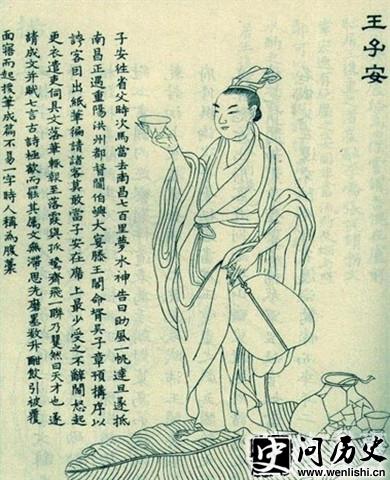 王子安
子安往省父時次馬當去南昌七百里夢水神告曰助風一帆達旦遂抵
南昌正遇重陽洪州都督閻伯嶼大宴滕王閣命壻吳子章預構序以
誇客因出紙筆徧請諸客莫敢當子安在席上最少受之不辭閻怒起
更衣遣吏伺其文落筆輒報至落霞與孤鶩齊飛一聯乃矍然曰天才也遂
請成文并賦七言古詩極歡而罷其屬文無滯思先磨墨數升酣飲引被覆
面寤而起援筆成篇不易一字時人稱為腹稾
史问历史
www.wenlishi.cn